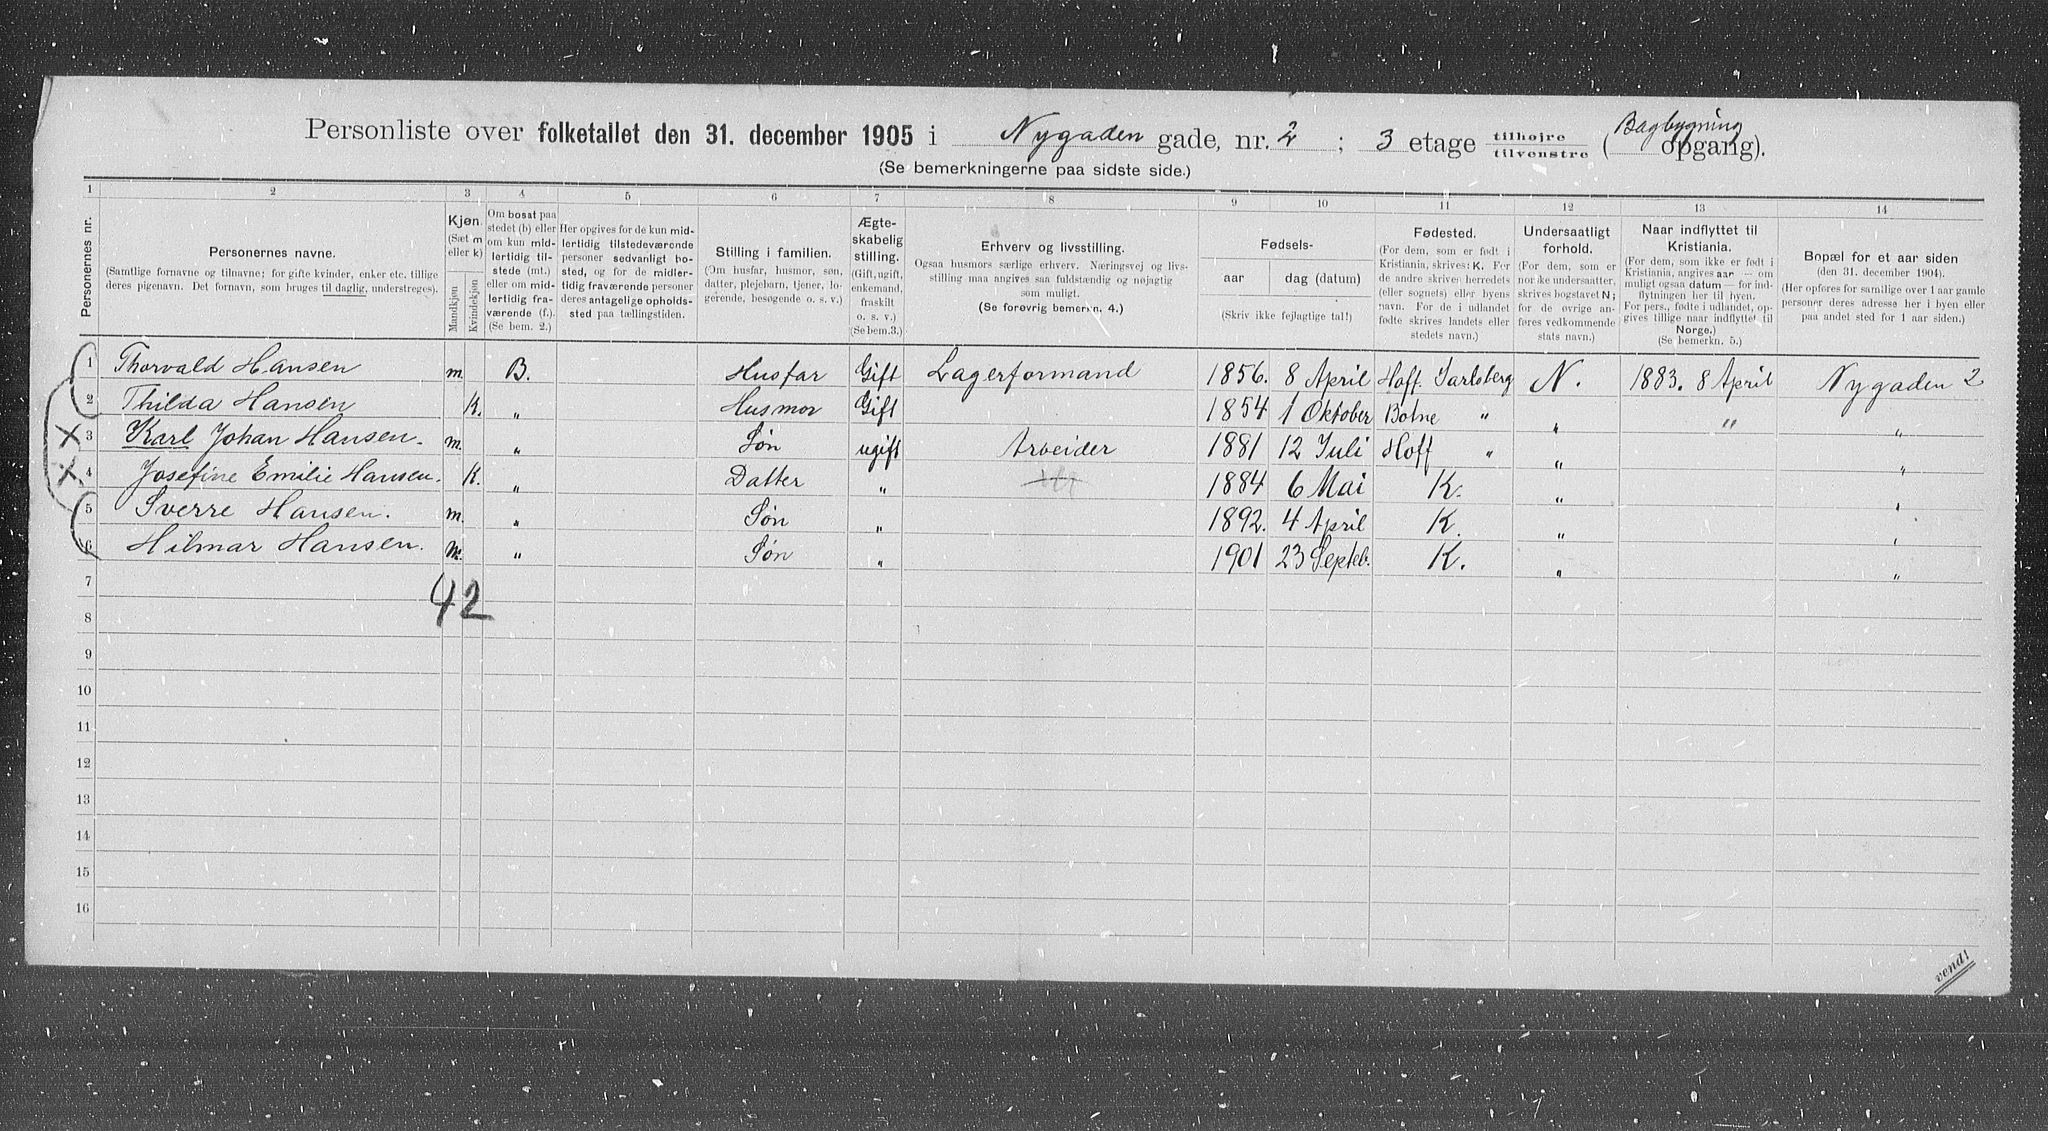 Personliste over folketallet den 31. december 1905 i Nygaden gade, nr. 2 ; 3 etage tilhøjre tilvenstre (Bagbygning opgang).
(Se bemerkningerne paa sidste side.)
1 2 3 4 5 6 7 8 9 10 11 12 13 14
Personernes nr.
Personernes navne.
(Samtlige fornavne og tilnavne; for gifte kvinder, enker etc. tillige
deres pigenavn. Det fornavn, som bruges til daglig, understreges).
Kjøn.
(Sæt m
eller k)
Mandkjøn
Kvindekjøn
Om bosat paa
stedet (b) eller
om kun mid-
lertidig til-
stede (mt.)
eller om mid-
lertidig fra-
værende (f.).
(Se bem. 2.)
Her opgives for de kun mid-
lertidig tilstedeværende
personer sedvanligt bo-
sted, og for de midler-
tidig fraværende personer
deres antagelige opholds-
sted paa tællingstiden.
Stilling i familien.
(Om husfar, husmor, søn,
datter, plejebarn, tjener, lo-
gerende, besøgende o. s. v.)
Ægte-
skabelig
stilling.
(Gift, ugift,
enkemand,
fraskilt
o. s. v.)
(Se bem.3.)
Erhverv og livsstilling.
Ogsaa husmors særlige erhverv. Næringsvej og livs-
stilling maa angives saa fuldstændig og nøjagtig
som muligt.
(Se forøvrig bemerkn. 4.)
Fødsels-
aar
dag (datum)
(Skriv ikke fejlagtige tal!)
Fødested.
(For dem, som er født i
Kristiania, skrives: K. For
de andre skriv herredets
(eller sognets) eller byens
navn. For de i udlandet
fødte skrives landets eller
stedets navn.)
Undersaatligt
forhold.
(For dem, som er
norske undersaatter,
skrives bogstavet N;
for de øvrige an-
føres vedkommende
stats navn.)
Naar indflyttet til
Kristiania.
(For dem, som ikke er født i
Kristiania, angives aar — om
muligt ogsaa datum — for ind-
flytningen her til byen.
For pers., født i udlandet, op-
gives tillige naar indflyttet til
Norge.)
(Se bemerkn. 5.)
Bopæl for et aar siden
(den 31. december 1904).
(Her opføres for samtlige over 1 aar gamle
personer deres adresse her i byen eller
paa andet sted for 1 aar siden.)
1 Thorvald Hansen m. B. Husfar Gift Lagerformand 1856. 8 April Hoff. Jarlsberg N. 1883. 8 April Nygaden 2
2 Thilda Hansen K. " Husmor Gift 1854 1 Oktober Botne " " " "
3 Karl Johan Hansen. m. " Søn ugift Arbeider 1881 12 Juli Hoff " " "
4 Josefine Emilie Hansen. K. " Datter " 1884 6 Mai K. " "
5 Sverre Hansen. m. " Søn " 1892. 4 April K. " "
6 Hilmar Hansen. m. " Søn " 1901 23 Septeb. K. " "
7
42
8
9
10
11
12
13
14
15
16
vend!